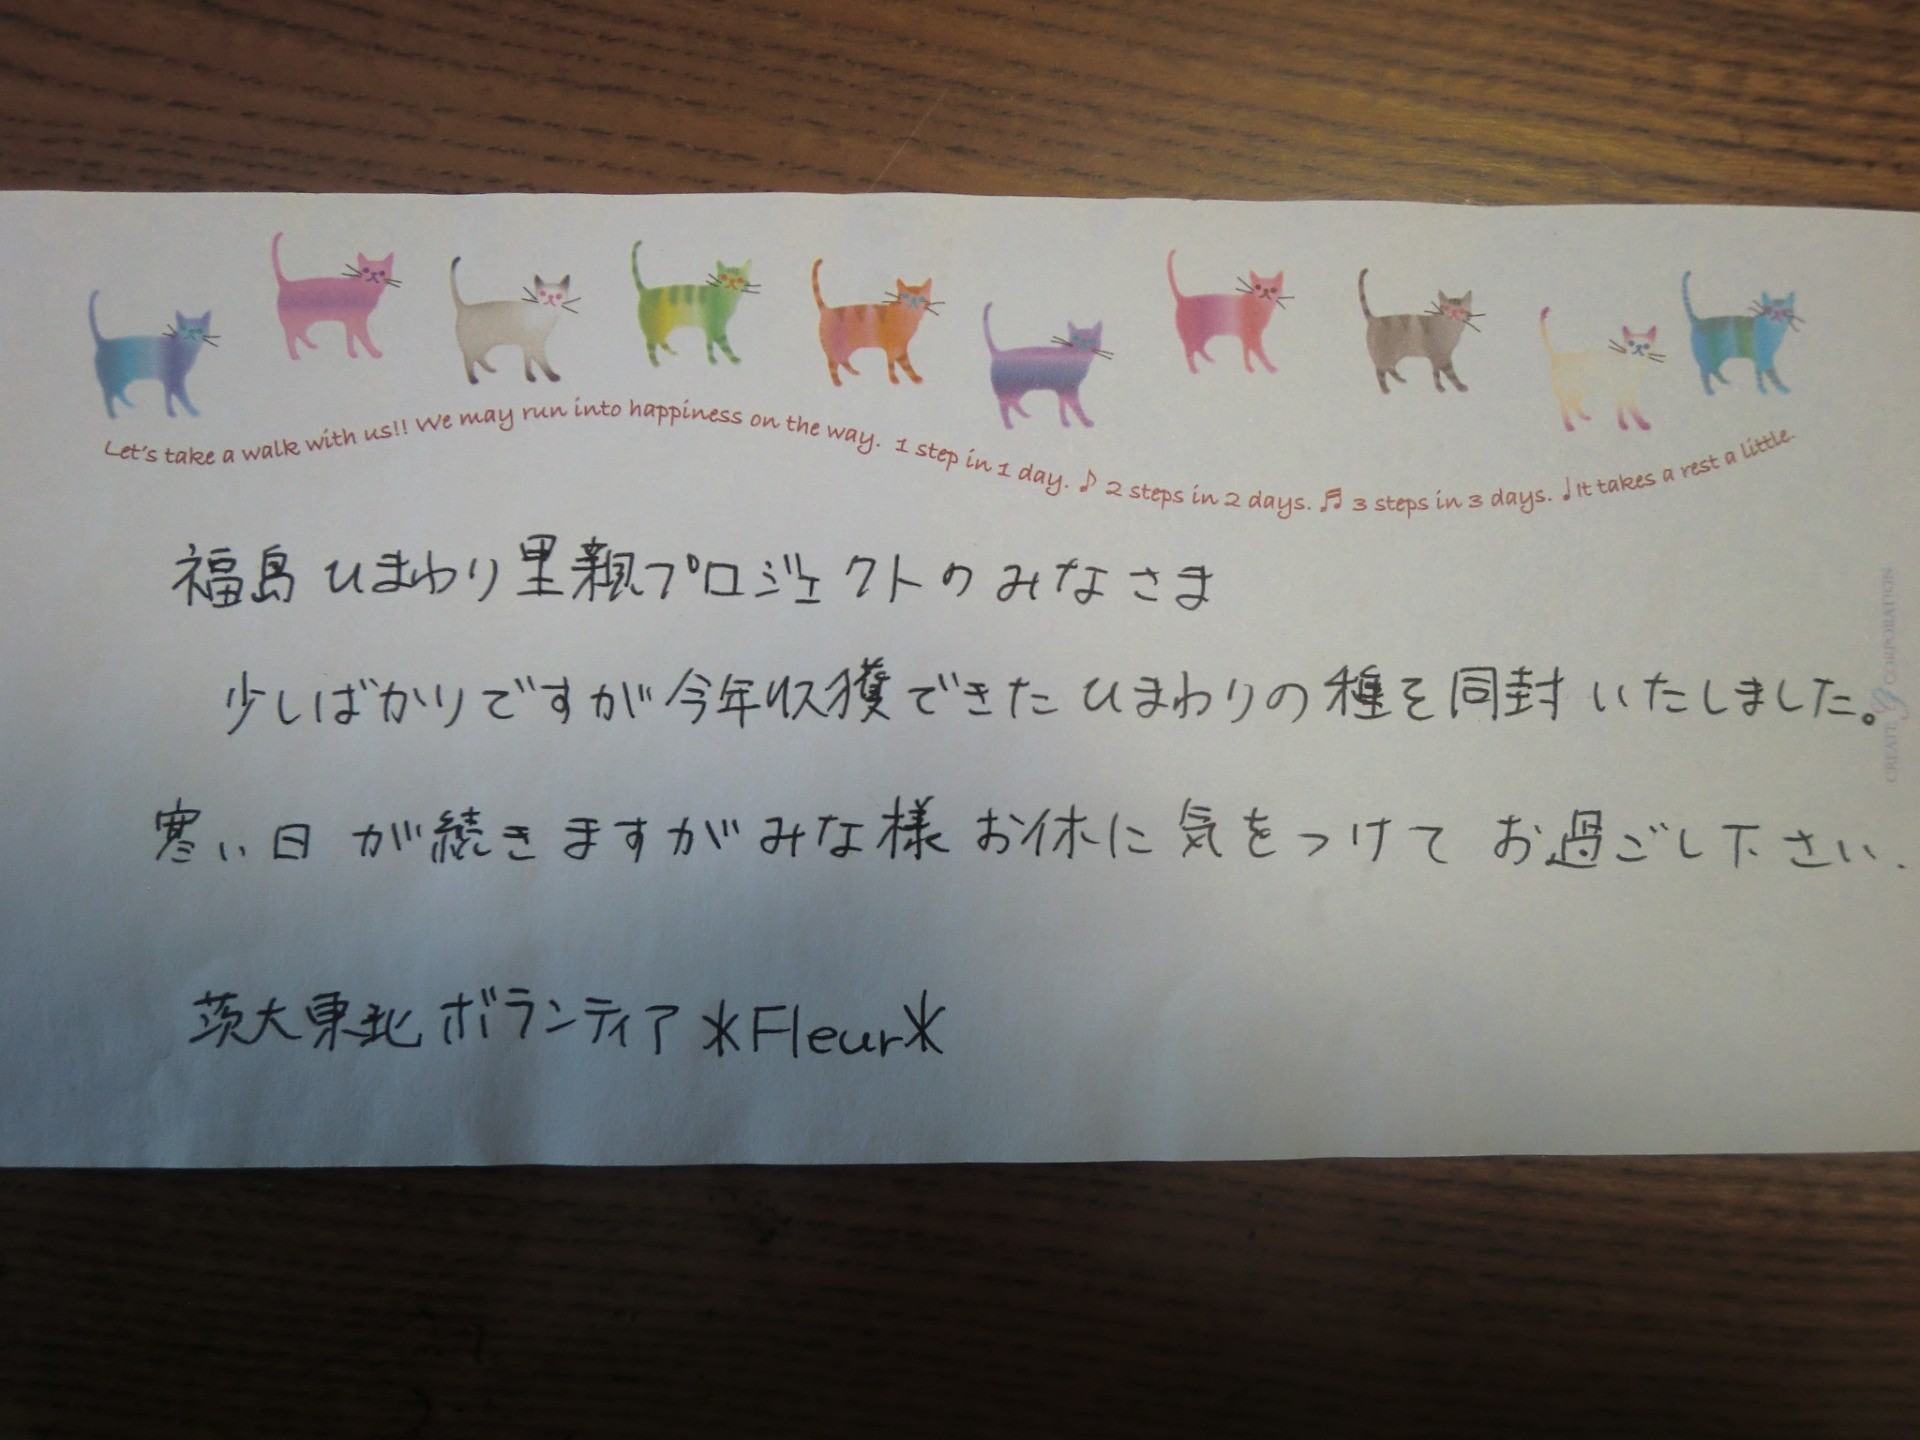 Let's take a walk with us!! We may run into happiness on the way. 1 step in 1 day. ♪ 2 steps in 2 days. ♬ 3 steps in 3 days. ♩It takes a rest a little.
福島ひまわり里親プロジェクトのみなさま
少しばかりですが今年収獲できたひまわりの種を同封いたしました。
寒い日が続きますがみな様お体に気をつけてお過ごし下さい.
茨大東北ボランティア *Fleur*
CREATE G CORPORATION